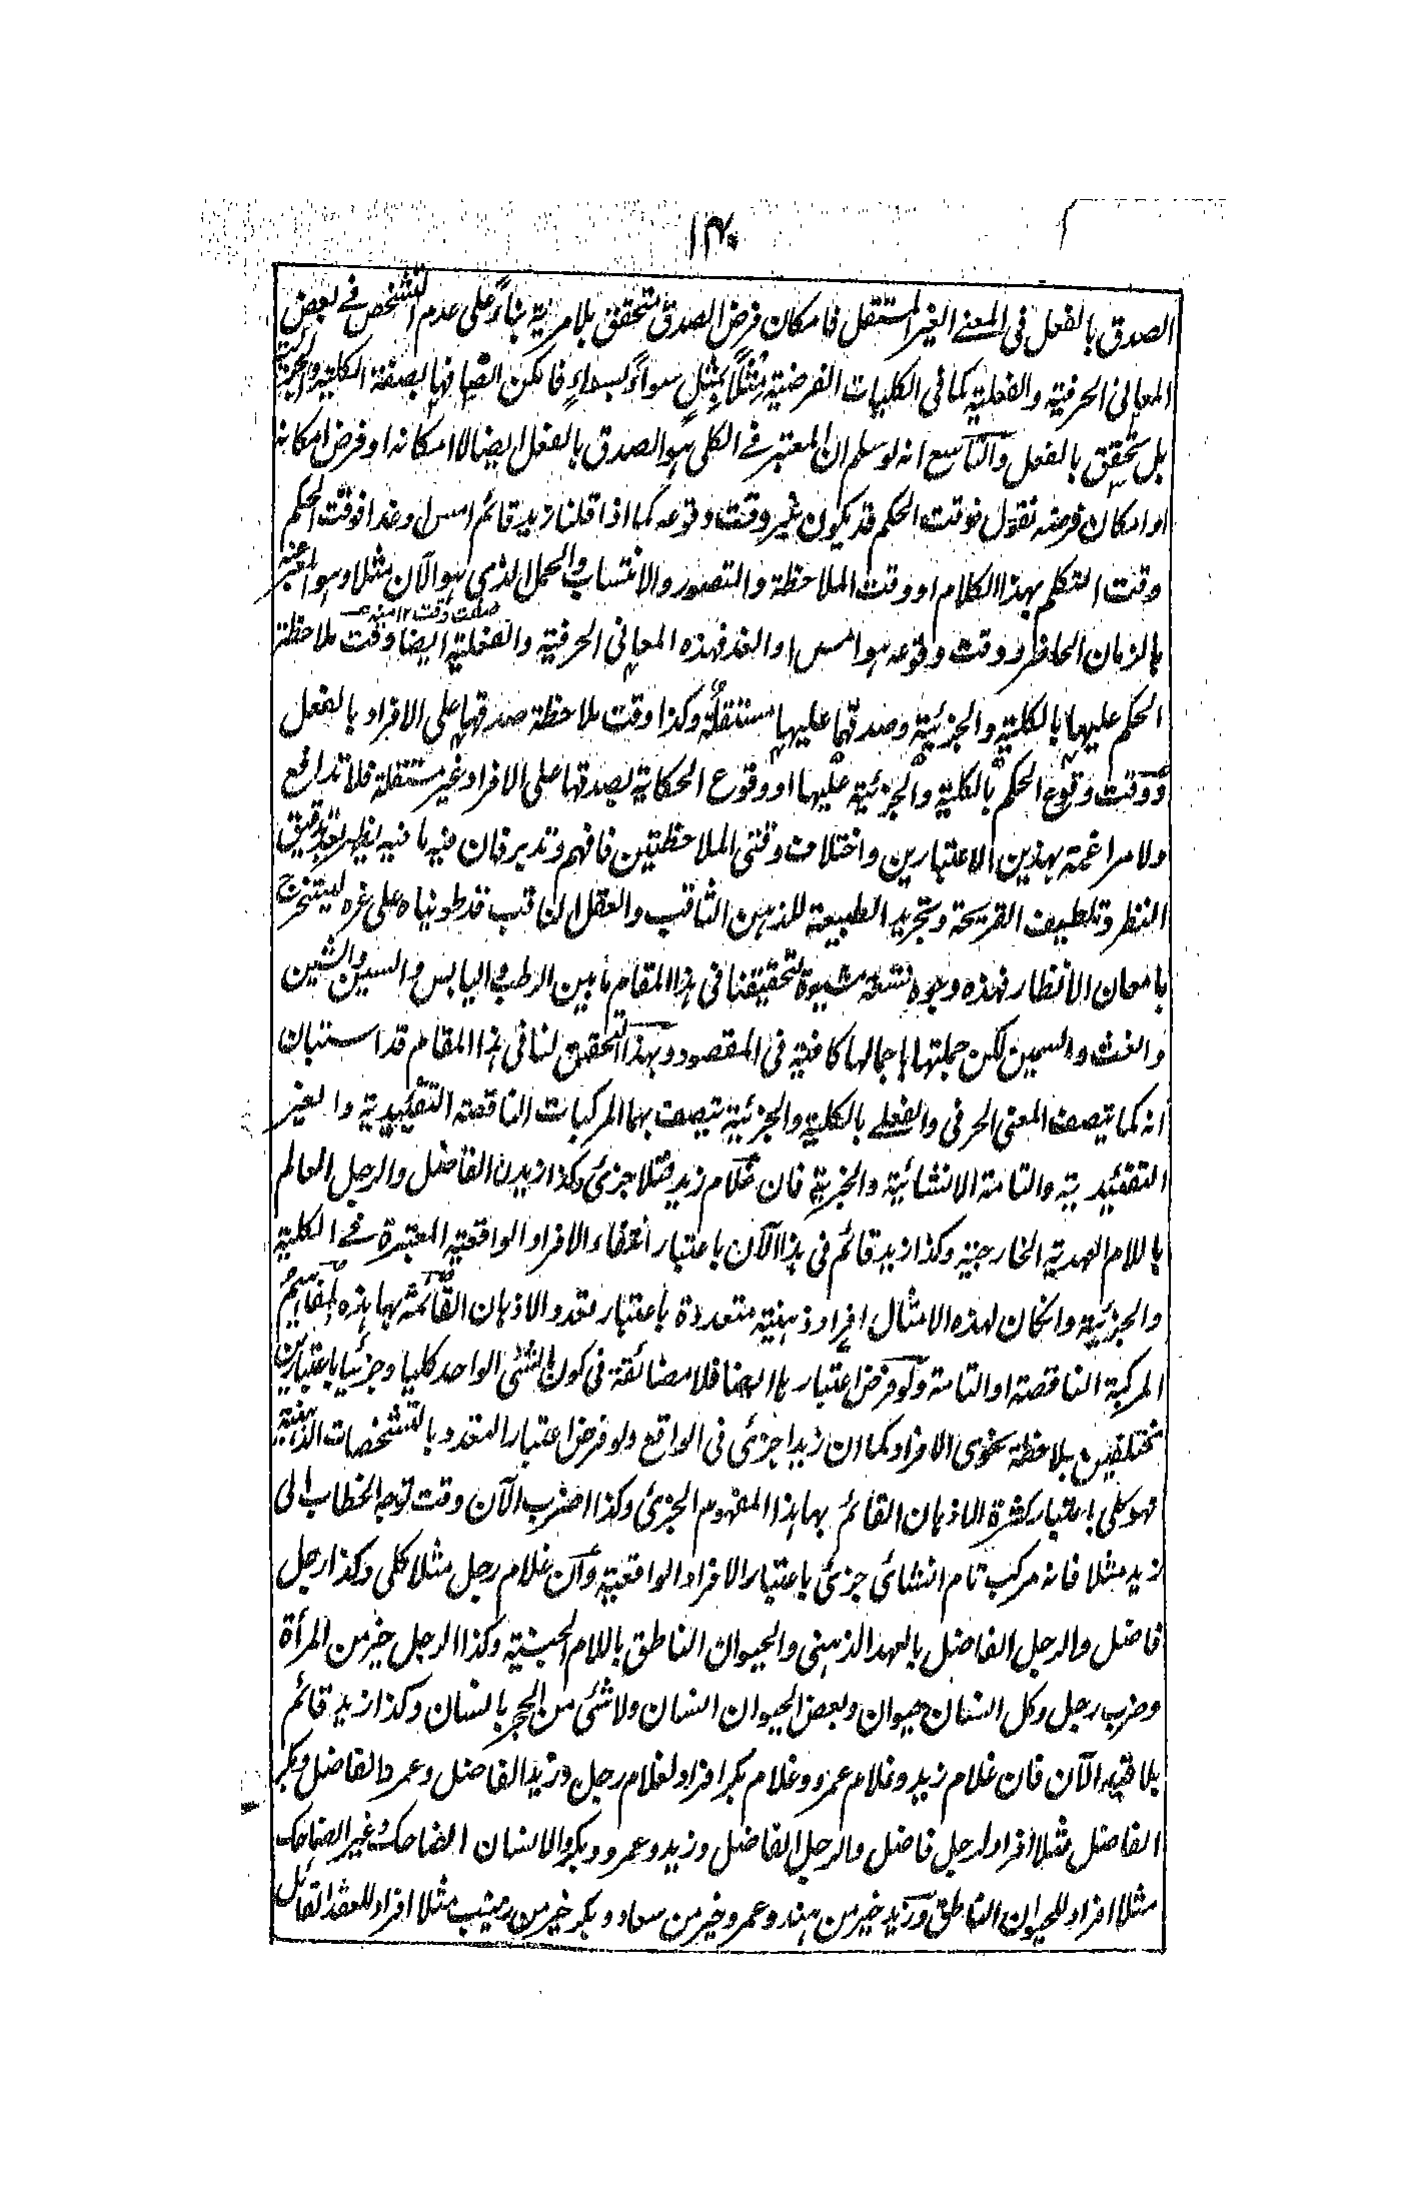 ١٣٠
الصدق بالفعل فى المعنے الغير المستقل فامكان فرض الصدق متحقق بلا مرية بناءً على عدم التشخص فے بعض
المعانى الحرفية والفعلية كما فى الكليات الفرضية مِثلاً بمثلٍ سواءً بسواءٍ فامكن اتصافها بصفة الكلية والجزئية
بل تحقق بالفعل والتاسع انه لو سلم ان المعتبر فے الكلى هو الصدق بالفعل ايضا لا امكانه او فرض امكانه
او امكان فرضه نقول فوقت الحكم قد يكون غير وقت وقوعه كما اذا قلنا زيد قائم امس او غدا فوقت الحكم
وقت التكلم بهذا الكلام او وقت الملاحظة والتصور والانتساب والحمل الذى هو الآن مثلا وهو المعبر عنه
بالزمان الحاضر ووقت وقوعه هو امس او الغد فهذه المعانى الحرفية والفعلية ايضا وقت ملاحظة
الحكم عليها بالكلية والجزئية وصدقهما عليها مستقلة وكذا وقت ملاحظة صدقها على الافراد بالفعل
ووقت وقوع الحكم بالكلية والجزئية عليها او وقوع الحكاية بصدقها على الافراد غير مستقلة فلا تدافع
ولا مراغمة بهذين الاعتبارين واختلاف وقتى الملاحظتين فافهم وتدبر فان فيه ما فيه يظهر بعد تدقيق
النظر وتلطيف القريحة وتجريد الطبيعة للذهن الثاقب والعقل الناقب قد طويناه على غره ليستخرج
بامعان الانظار فهذه وجوه تسعة مشيدة لتحقيقنا فى هذا المقام ما بين الرطب واليابس والسين والشين
والغث والسمين لكن جملتها باجمالها كافية فى المقصود وبهذا التحقيق لنا فى هذا المقام قد استبان
انه كما يتصف المعنى الحرفى والفعلے بالكلية والجزئية يتصف بهما المركبات الناقصة التقئيدية والغير
التقئيدية والتامة الانشائية والخبرية فان غلام زيد مثلا جزئى وكذا زيدن الفاضل والرجل العالم
باللام العهدية الخارجية وكذا زيد قائم فى هذا الآن باعتبار انتفاء الافراد الواقعية المعتبرة فے الكلية
والجزئية وان كان لهذه الامثال افراد ذهنية متعددة باعتبار تعدد الاذهان القائمة بها هذه المفاهيم
المركبة الناقصة او التامة ولو فرض اعتبارها ايضا فلا مضائقة فى كون الشئى الواحد كليا وجزئيا باعتبارين
مختلفين بملاحظة نحوى الافراد كما ان زيدا جزئى فى الواقع ولو فرض اعتبار التعدد بالتشخصات الذهنية
فهو كلى باعتبار كثرة الاذهان القائم بها هذا المفهوم الجزئى وكذا اضرب الآن وقت توجه الخطاب الى
زيد مثلا فانه مركب تام انشائى جزئى باعتبار الافراد الواقعية وان غلام رجل مثلا كلى وكذا رجل
فاضل والرجل الفاضل بالعهد الذهنى والحيوان الناطق باللام الجنسية وكذا الرجل خير من المرأة
وضرب رجل وكل انسان حيوان وبعض الحيوان انسان ولا شئى من الحجر بانسان وكذا زيد قائم
بلا قيد الآن فان غلام زيد وغلام عمرو وغلام بكر افراد لغلام رجل وزيد الفاضل وعمرو الفاضل وبكر
الفاضل مثلا افراد لرجل فاضل والرجل الفاضل وزيد وعمرو وبكر والانسان الضاحك وغير الضاحك
مثلا افراد للحيوان الناطق وزيد خير من هند وعمرو خير من سعاد وبكر خير من زينب مثلا افراد للعقد القائل